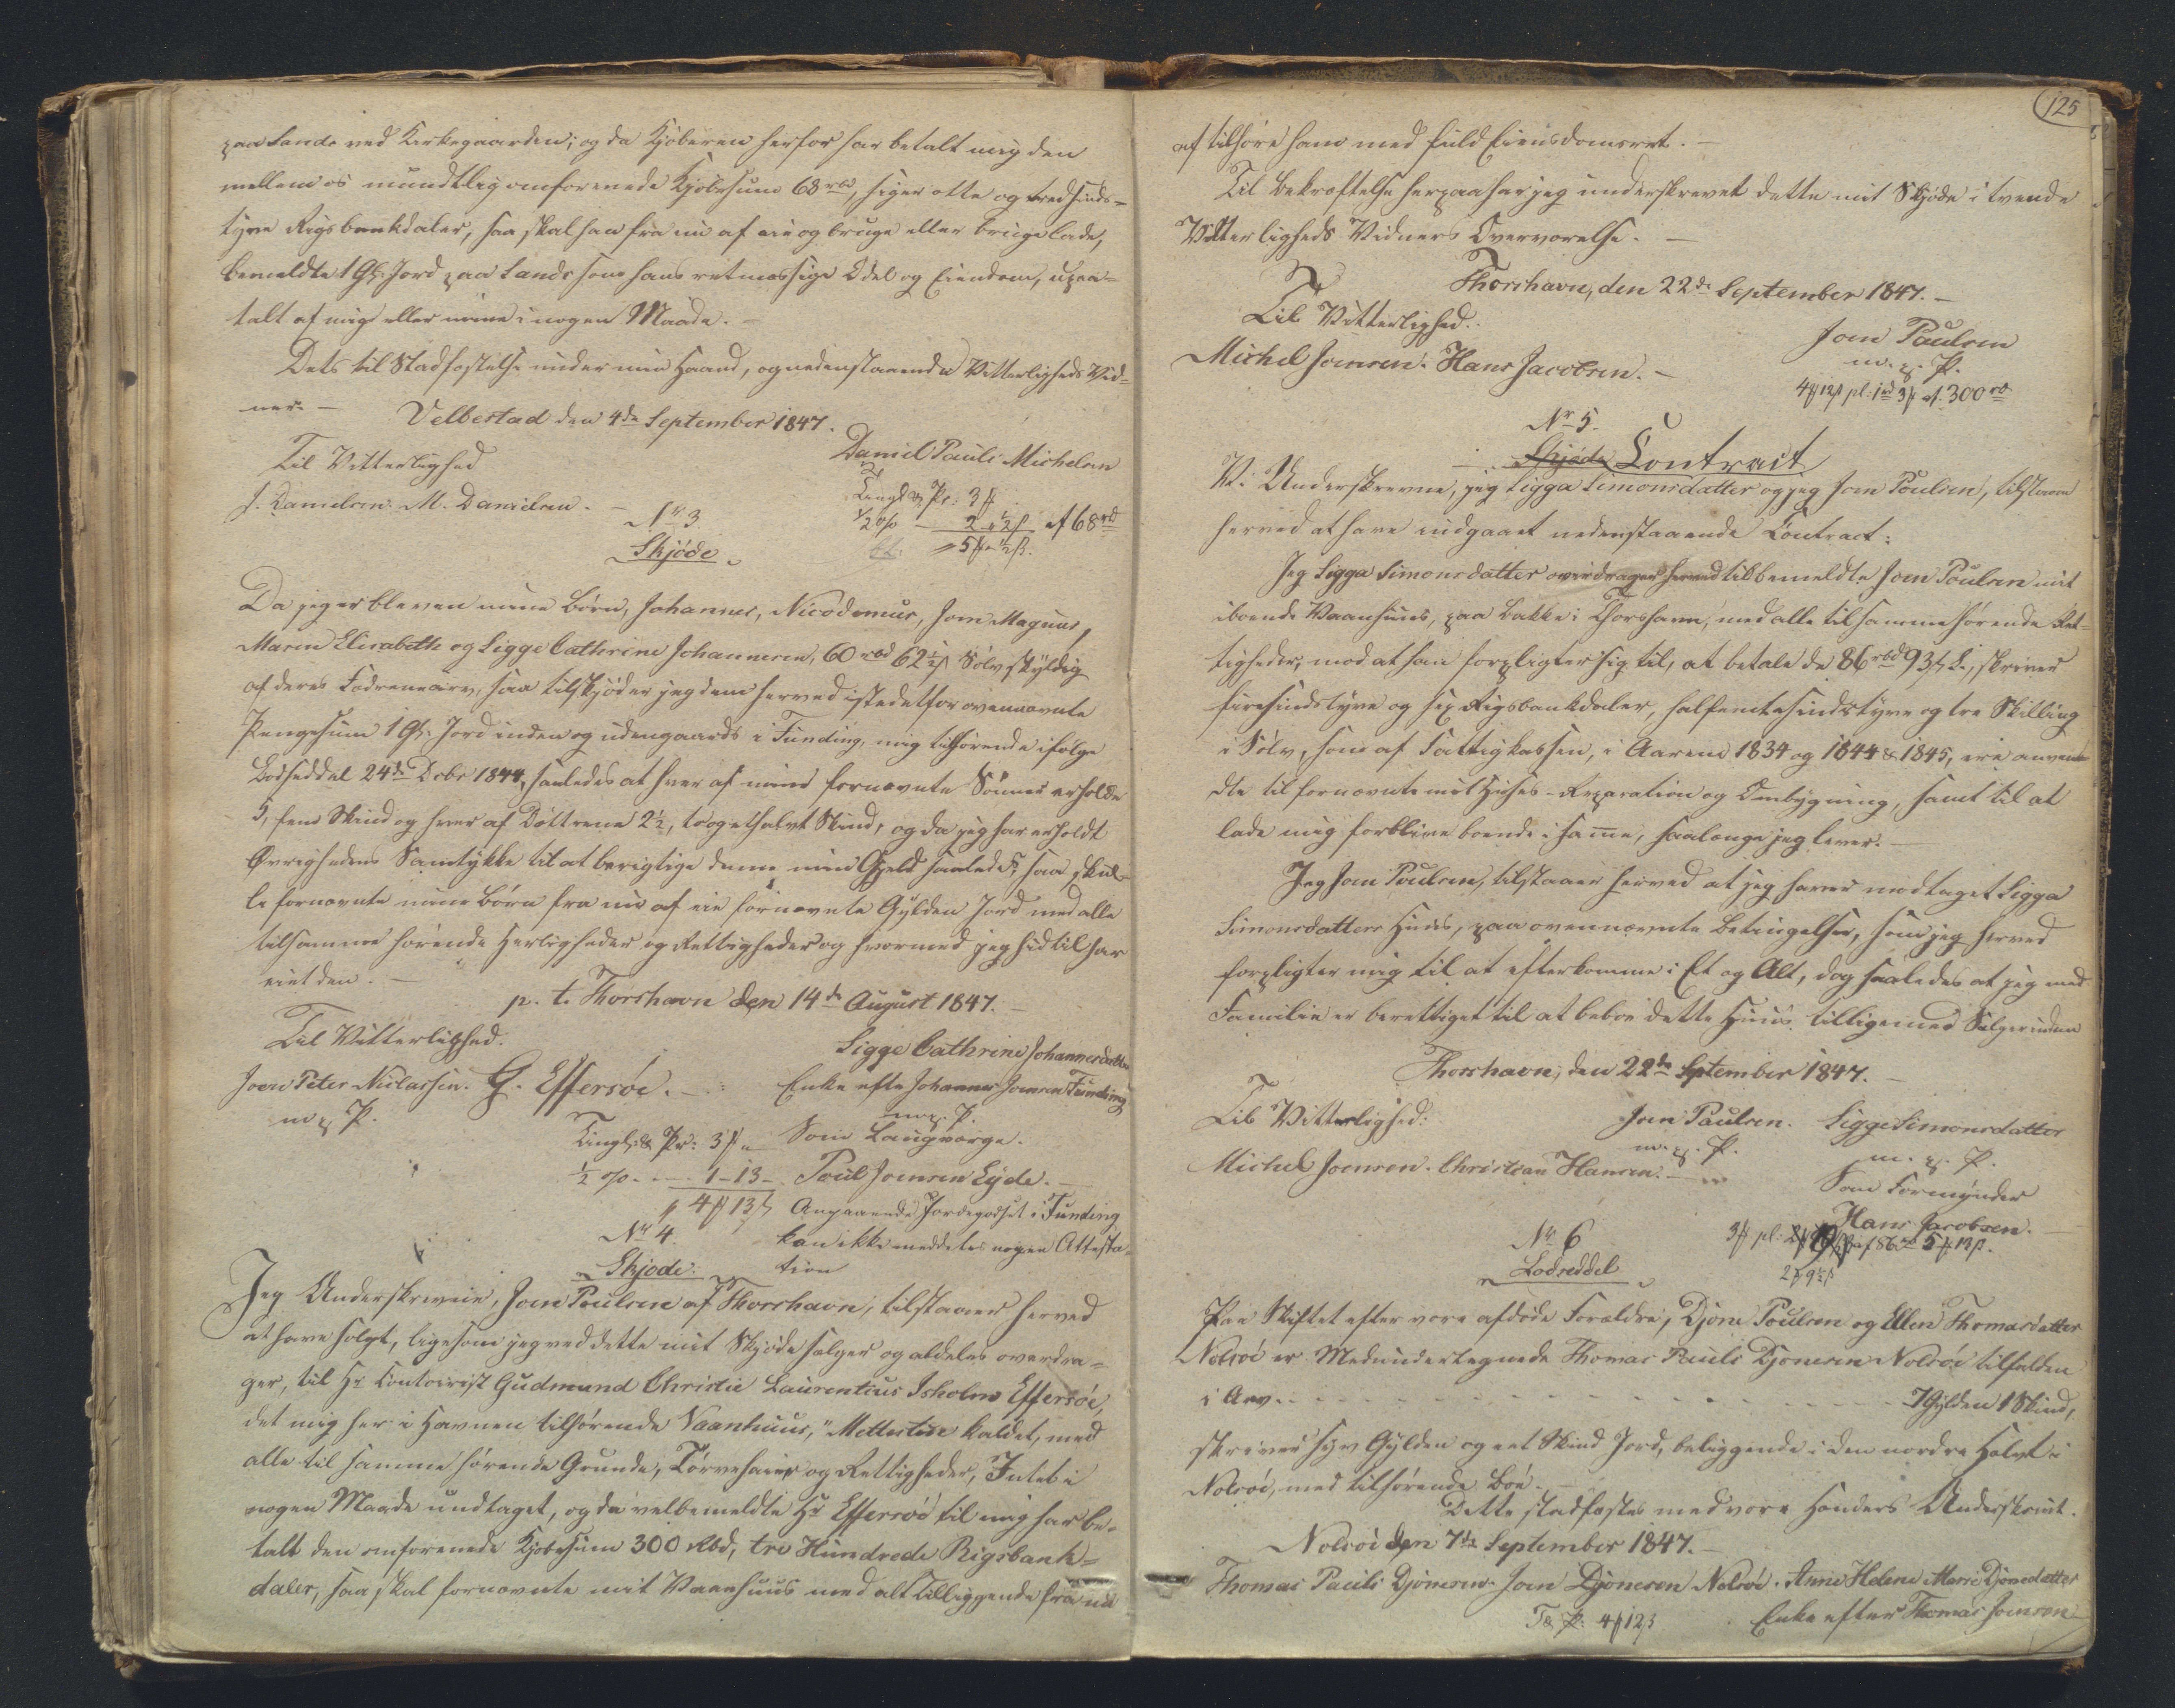 paa Sande ved Kirkegaarden; og da Kjöberen herfor har betalt mig den
mellem os mundtlig omforenede Kjöbesum 68 rbd, siger otte og tredsinds-
tyve Rigsbankdaler, saa skal han fra nu af eie og bruge eller bruge lade,
bemeldte 1 Gl. Jord paa Sands som hans retmæssige Odel og Eiendom, upaa-
talt af mig eller mine i nogen Maade. –
Dets til Stadfæstelse under min Haand, og nedenstaaende Vitterligheds Vid-
ner. – Velbestad den 4de September 1847.
Til Vitterlighed
Daniel Pauli Michelsen
J. Danielsen. M. Danielsen. –
Tingl. & Pr: 3 ß
½ % — 2 - ½ ß af 68 rd
5 ß ½ ß.
No 3.
Skjöde
Da jeg er bleven mine Börn, Johannes, Nicodemus, Joen Magnus,
Maren Elisabeth og Sigge Cathrine Johannesen, 60 rbd 62½ ß Sölv skyldig
af deres Fædrenearv, saa tilskjöder jeg dem herved istedetfor ovennævnte
Pengesum 1 Gl. Jord inden og udengaards i Funding, mig tilhörende ifölge
Lodseddel 24de Decbr 1844, saaledes at hver af mine fornævnte Sönner erholde
5, fem Skind og hver af Döttrene 2½, to og et halvt Skind, og da jeg har erholdt
Övrighedens Samtykke til at berigtige denne min Gjeld saaledes, saa skul-
le fornævnte mine Börn fra nu af eie fornævnte Gylden Jord med alle
tilsamme hörende Herligheder og Rettigheder og hvormed jeg hidtil har
eiet den. –
p. t. Thorshavn den 14de August 1847. –
Til Vitterlighed.
Sigge Cathrine Johannesdatter
Joen Peter Niclassen. G. Effersöe. –
Enke efter Johannes Joensen Funding
m. p. P.
m. p. P.
Tingl: & Pr: 3 ß
Som Laugværge.
½ % - - 1 - 13 -
Poul Joensen Eyde. –
4 ß 13 ß
Angaaende Jordegodset i Funding
No 4.
kan ikke meddeles nogen Attesta-
Skjöde.
tion
Jeg Underskrevne, Joen Poulsen af Thorshavn, tilstaaer herved
at have solgt, ligesom jeg ved dette mit Skjöde sælger og aldeles overdra-
ger, til Hr Contoirist Gudmund Christie Laurentius Isholm Effersöe,
det mig her i Havnen tilhörende Vaanhuus, " kaldet, med
alle til samme hörende Grunde, Törvehauge og Rettigheder, Intet i
nogen Maade undtaget, og da velbemeldte Hr Effersöe til mig har be-
talt den omforenede Kjöbesum 300 Rbd, tre Hundrede Rigsbank-
daler, saa skal fornævnte mit Vaanhuus med alt Tilliggende fra nu
125
af tilhöre ham med fuld Eiendomsret. –
Til Bekræftelse herpaa har jeg underskrevet dette mit Skjöde i tvende
Vitterligheds Vidners Overværelse. –
Thorshavn, den 22de September 1847. –
Til Vitterlighed.
Joen Paulsen
Michel Joensen. Hans Jacobsen. –
m. p. P.
af 300 rd
No 5.
Skjöde Contract
Vi Underskrevne, jeg Sigga Simonsdatter og jeg Joen Poulsen, tilstaae
herved at have indgaaet nedenstaaende Contract:
Jeg Sigga Simonsdatter overdrager herved til bemeldte Joen Poulsen mit
iboende Vaanhuus, paa Bakke i Thorshavn, med alle tilsamme hörende Ret-
tigheder, mod at han forpligter sig til, at betale de 86 rbd 93 ß S., skriver
firesindstyve og sex Rigsbankdaler, halfemtesindstyve og tre Skilling
i Sölv, som af Fattigkassen, i Aarene 1834 og 1844 & 1845, ere anven-
dte til fornævnte mit Huses-Reparation og Ombygning, samt til at
lade mig forblive boende i samme, saalænge jeg lever. –
Jeg Joen Poulsen, tilstaaer herved at jeg haver modtaget Sigga
Simonsdatters Huus, paa ovennævnte Betingelser, som jeg herved
forpligter mig til at efterkomme i Et og Alt, dog saaledes at jeg med
Familie er berettiget til at beboe dette Huus tilligemed Sælgerinden
Thorshavn, den 22de September 1847. –
Til Vitterlighed:
Joen Paulsen. Sigge Simonsdatter
m. p. P. m. p. P.
Michel Joensen. Christian Hansen. –
Som Formynder
Hans Jacobsen. –
No 6
Lodseddel
Paa Skiftet efter vore afdöde Forældre, Djone Poulsen og Ellen Thomasdatter
Nolsöe er Medundertegnede Thomas Pauli Djonesen Nolsöe tilfalden
i Arv - - - - - - 7 Gylden 1 Skind,
skriver syv Gylden og eet Skind Jord, beliggende i den nordre Halvt i
Nolsöe, med tilhörende Boe. –
Dette stadfæstes med vore Hænders Underskrivt.
Nolsöe den 7de September 1847. –
Thomas Pauli Djonesen. Joen Djonesen Nolsöe. Anne Helene Marie Djonedatter
T & p: 4 ß 12 ß
Enke efter Thomas Joensen